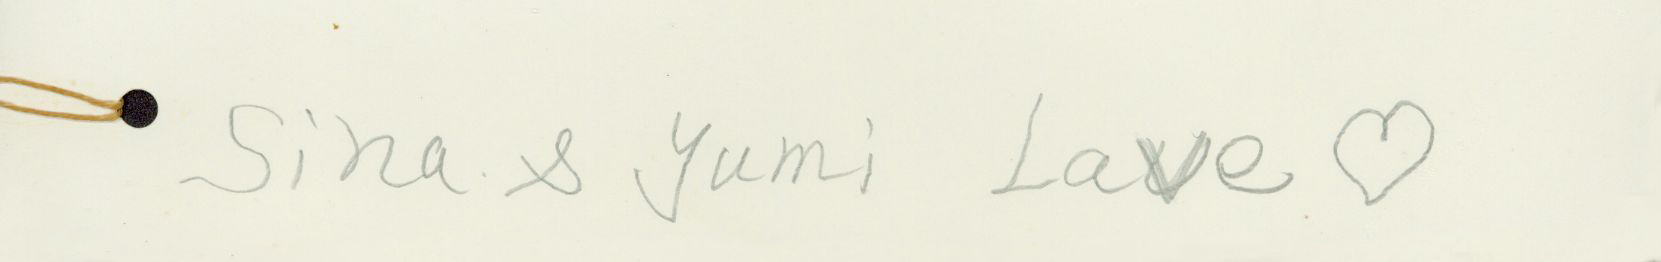 Sina & Yumi Lave ♡